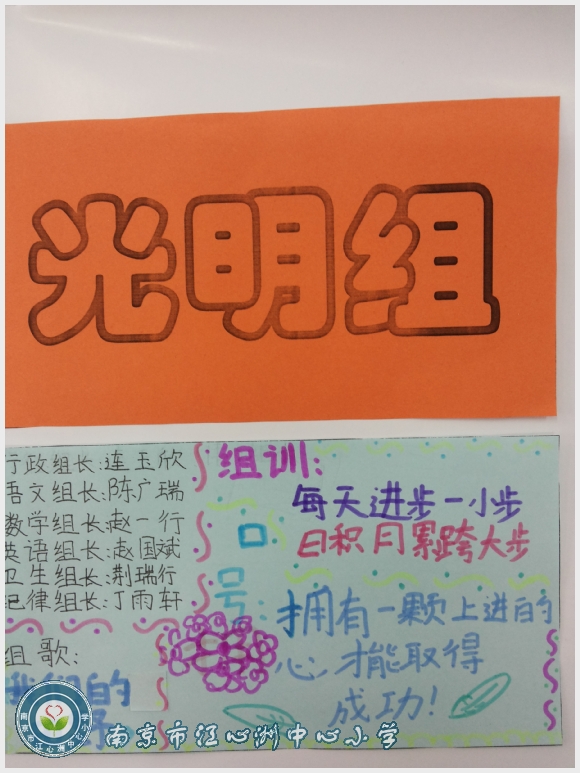 光明组
行政组长:连玉欣
语文组长:陈广瑞
数学组长:赵一行
英语组长:赵国斌
卫生组长:荆瑞行
纪律组长:丁雨轩
组歌:
的
组训:
每天进步一小步
日积月累跨大步
口号:
拥有一颗上进的
心,才能取得
成功!
南京市江心洲中心小学
南京市江心洲中心小学